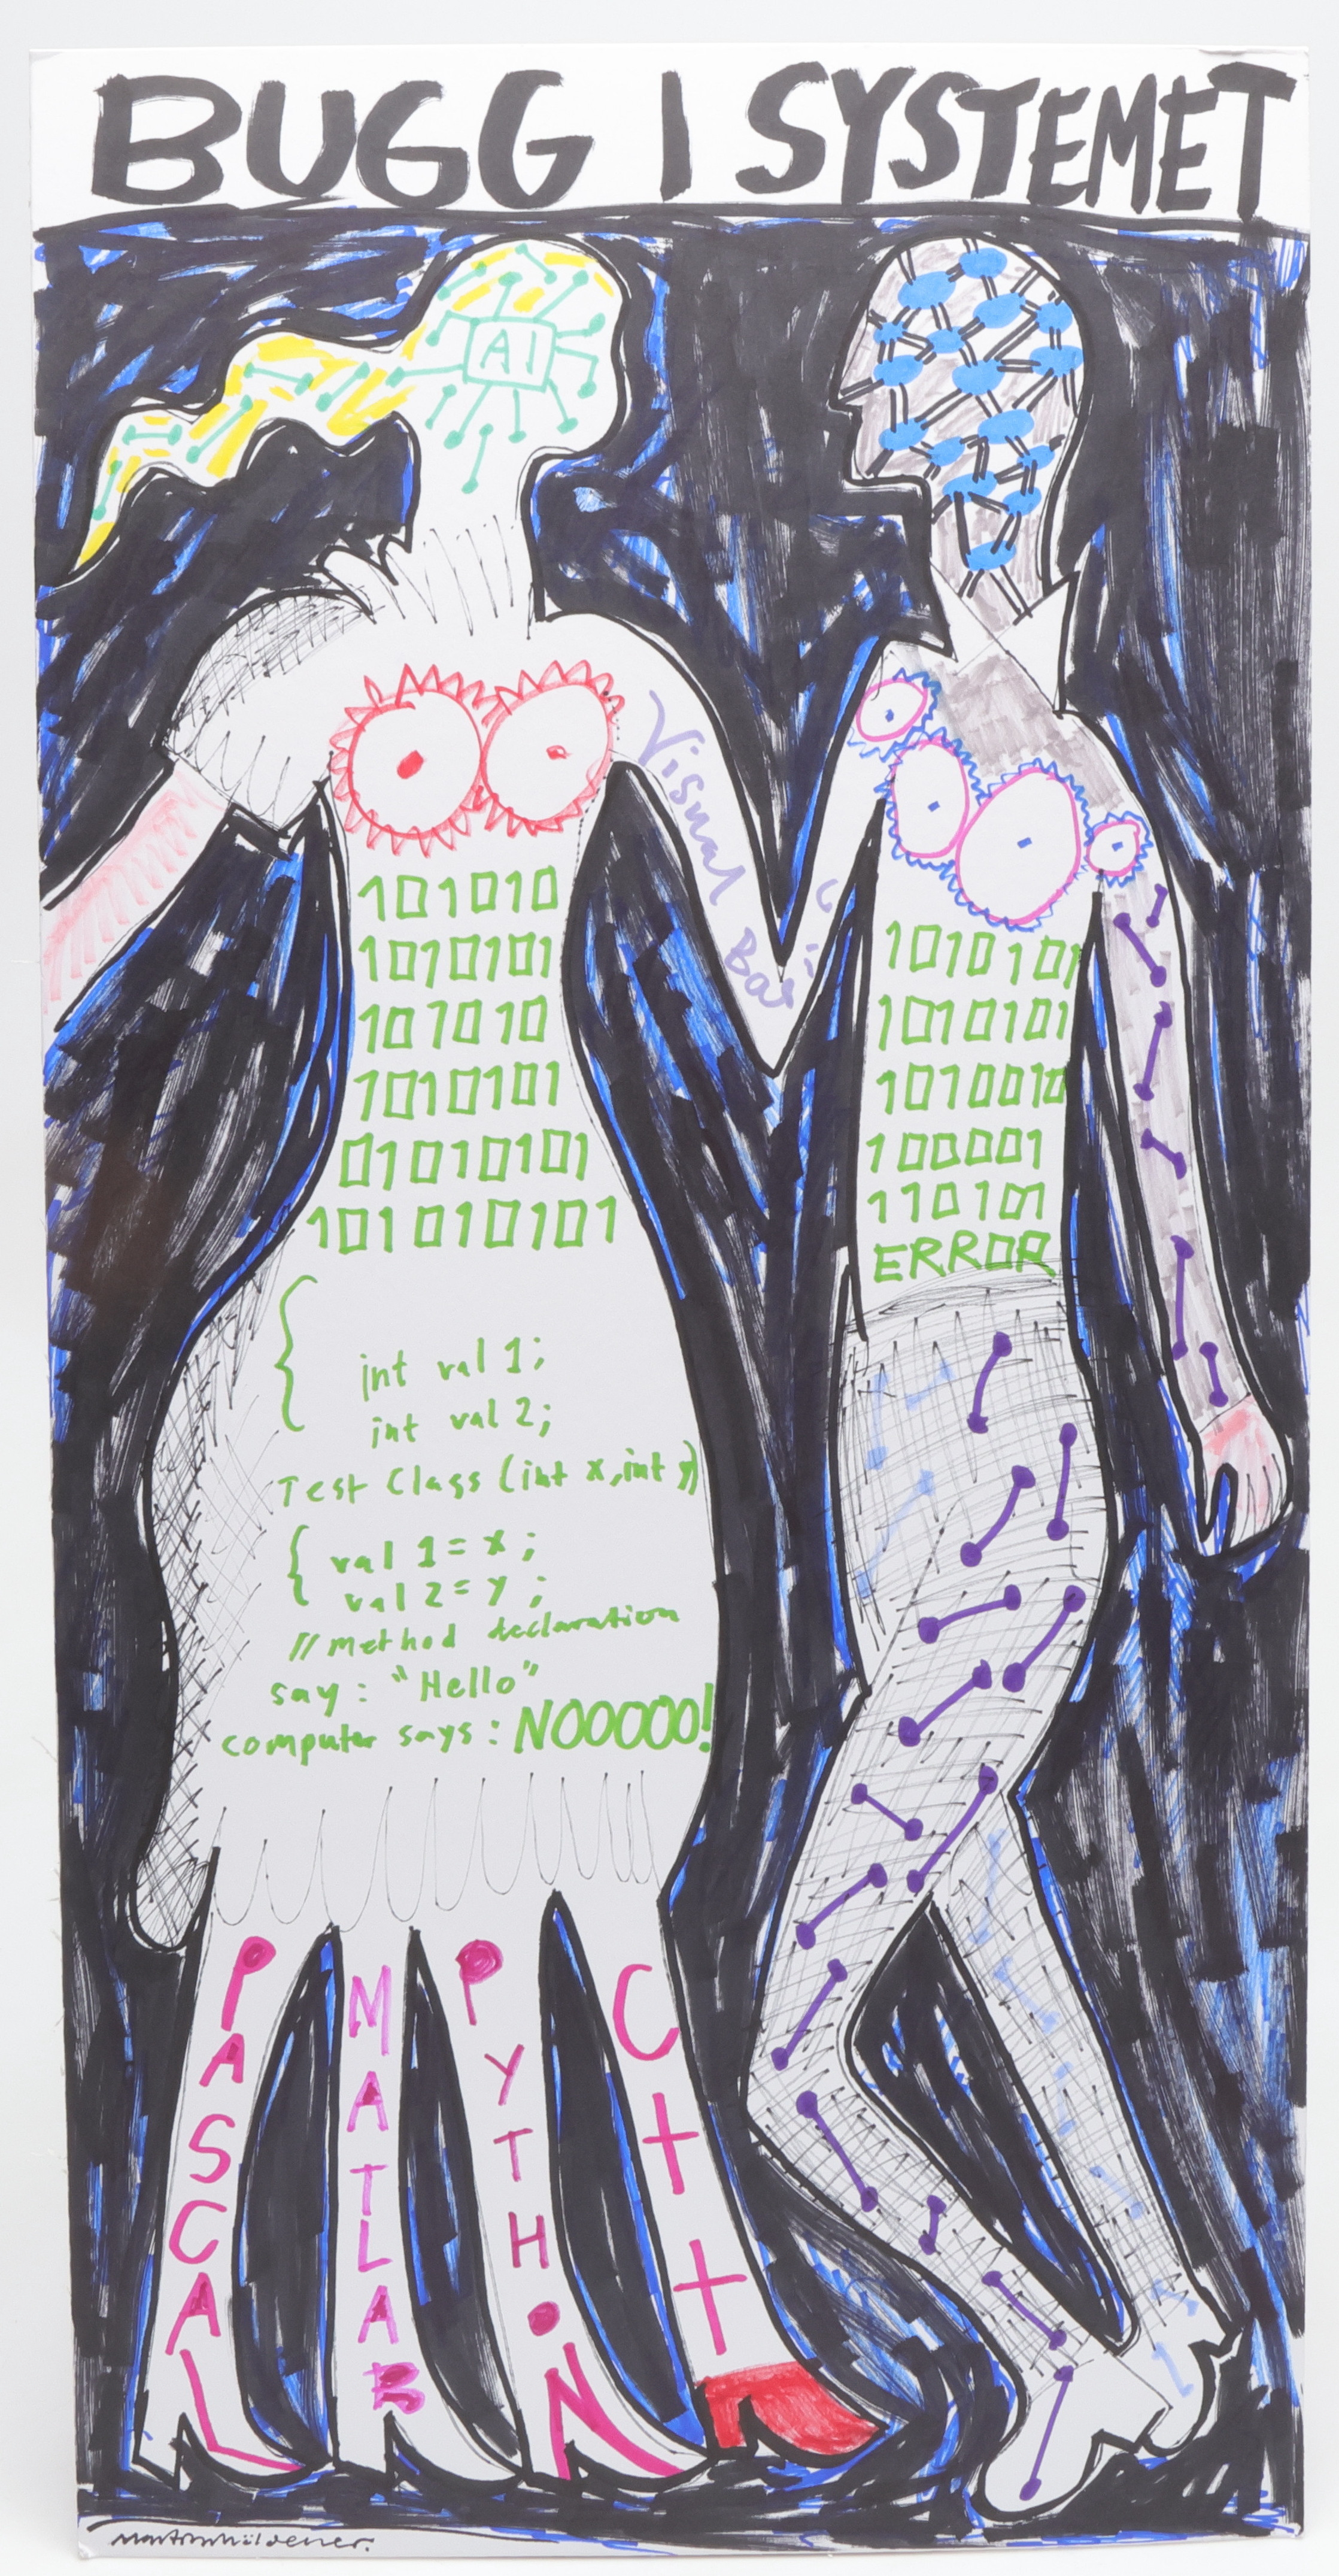 BUGG I SYSTEMET
AI
Visual Basic
101010
1010101
101010
1010101
01010101
101010101
{
int val 1;
int val 2;
Test Class (int x, int y)
{ val 1 = x ;
val 2 = y ;
// method declaration
say : "Hello"
computer says : NOOOOO!
PASCAL
MATLAB
PYTHON
C++
1010101
1010101
1010010
100001
110101
ERROR